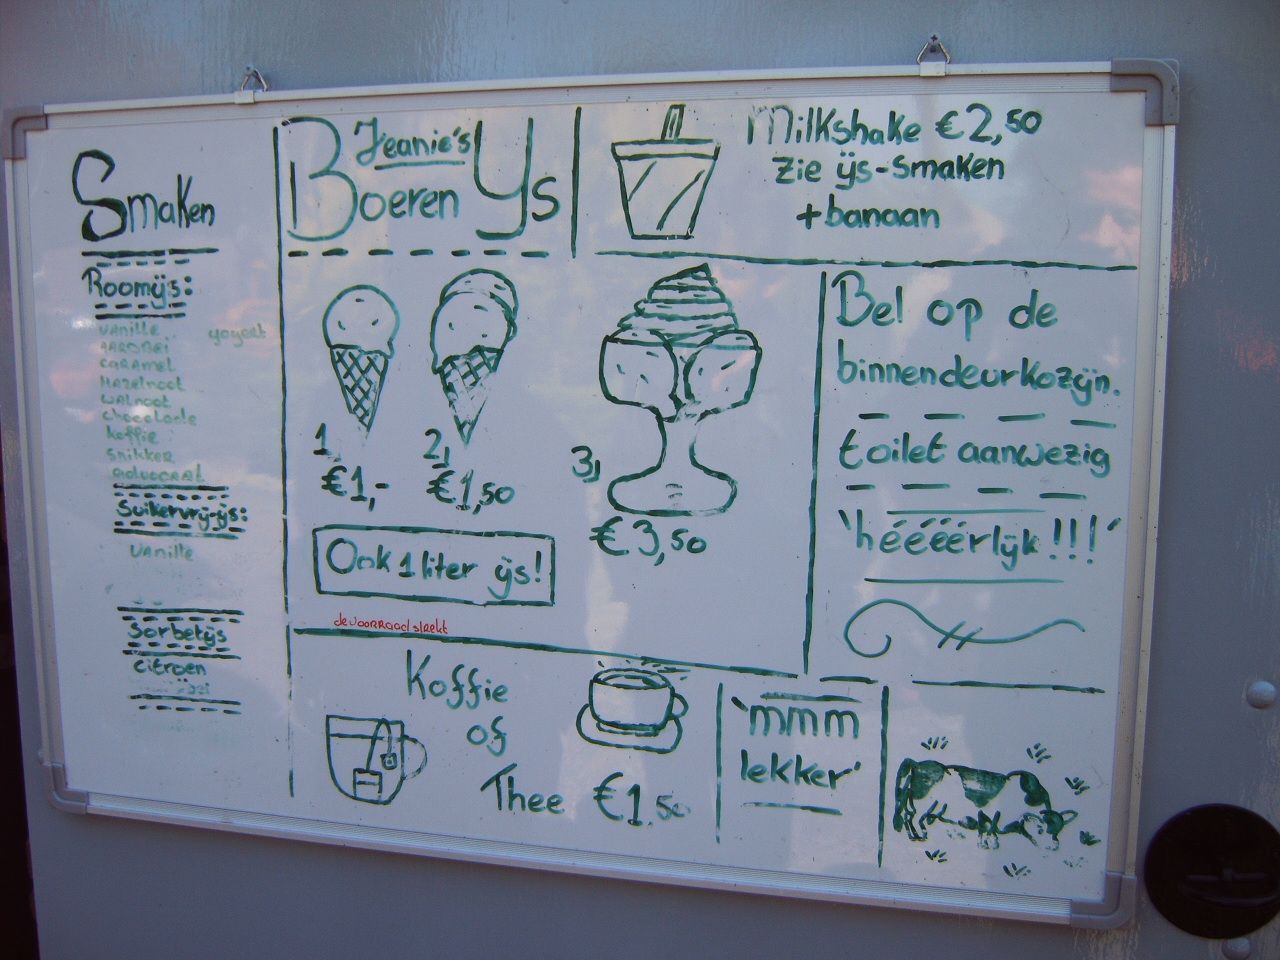 Smaken
Roomijs:
vanille
yogert
AARDBEI
CARAMEL
HAzelnoot
walnoot
chocolade
koffie
Snikker
advocaat
Suikervrij-ijs:
vanille
Sorbetijs
citroen
Jeanie's
Boeren Ys
1,
€1,-
2,
€1,50
3,
€3,50
Ook 1 liter ijs!
de voorraad strekt
Milkshake €2,50
zie ijs-smaken
+banaan
Bel op de
binnendeurkozijn.
toilet aanwezig
'héééérlijk!!!'
Koffie
of
Thee €1.50
'mmm
lekker'